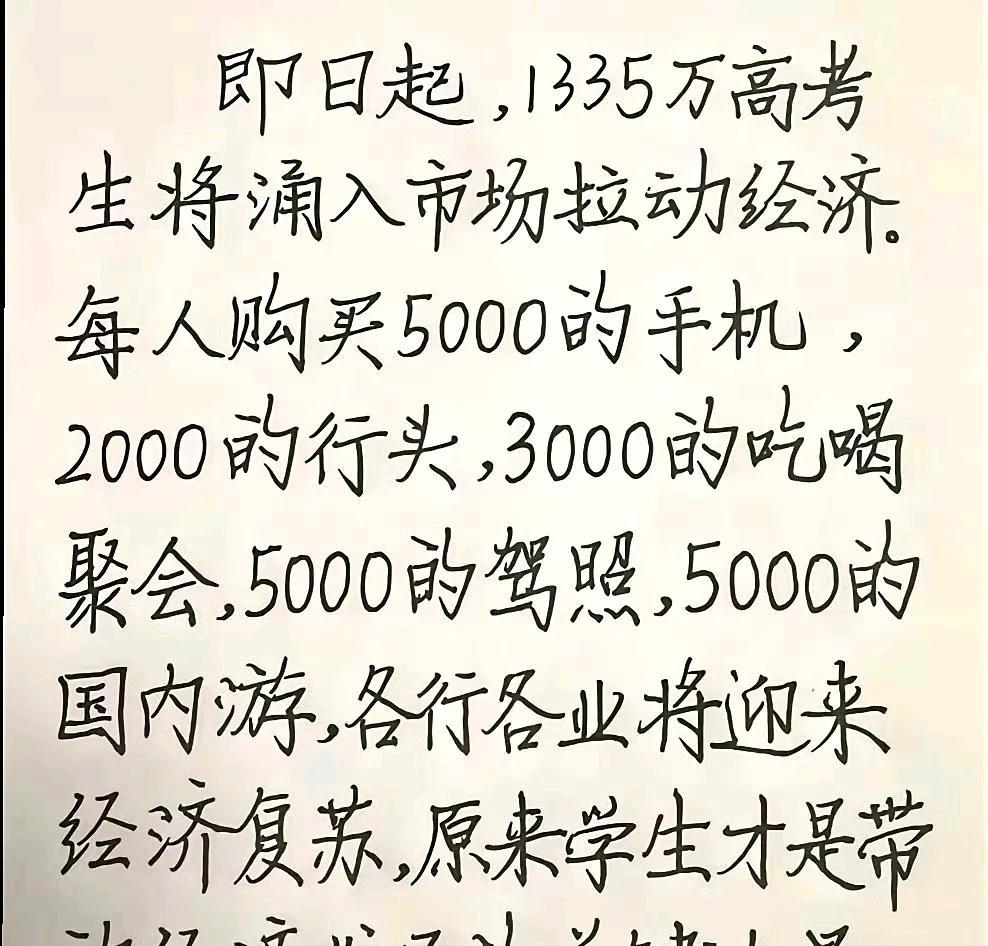 即日起,1335万高考
生将涌入市场拉动经济。
每人购买5000的手机,
2000的行头,3000的吃喝
聚会,5000的驾照,5000的
国内游,各行各业将迎来
经济复苏,原来学生才是带
动经济